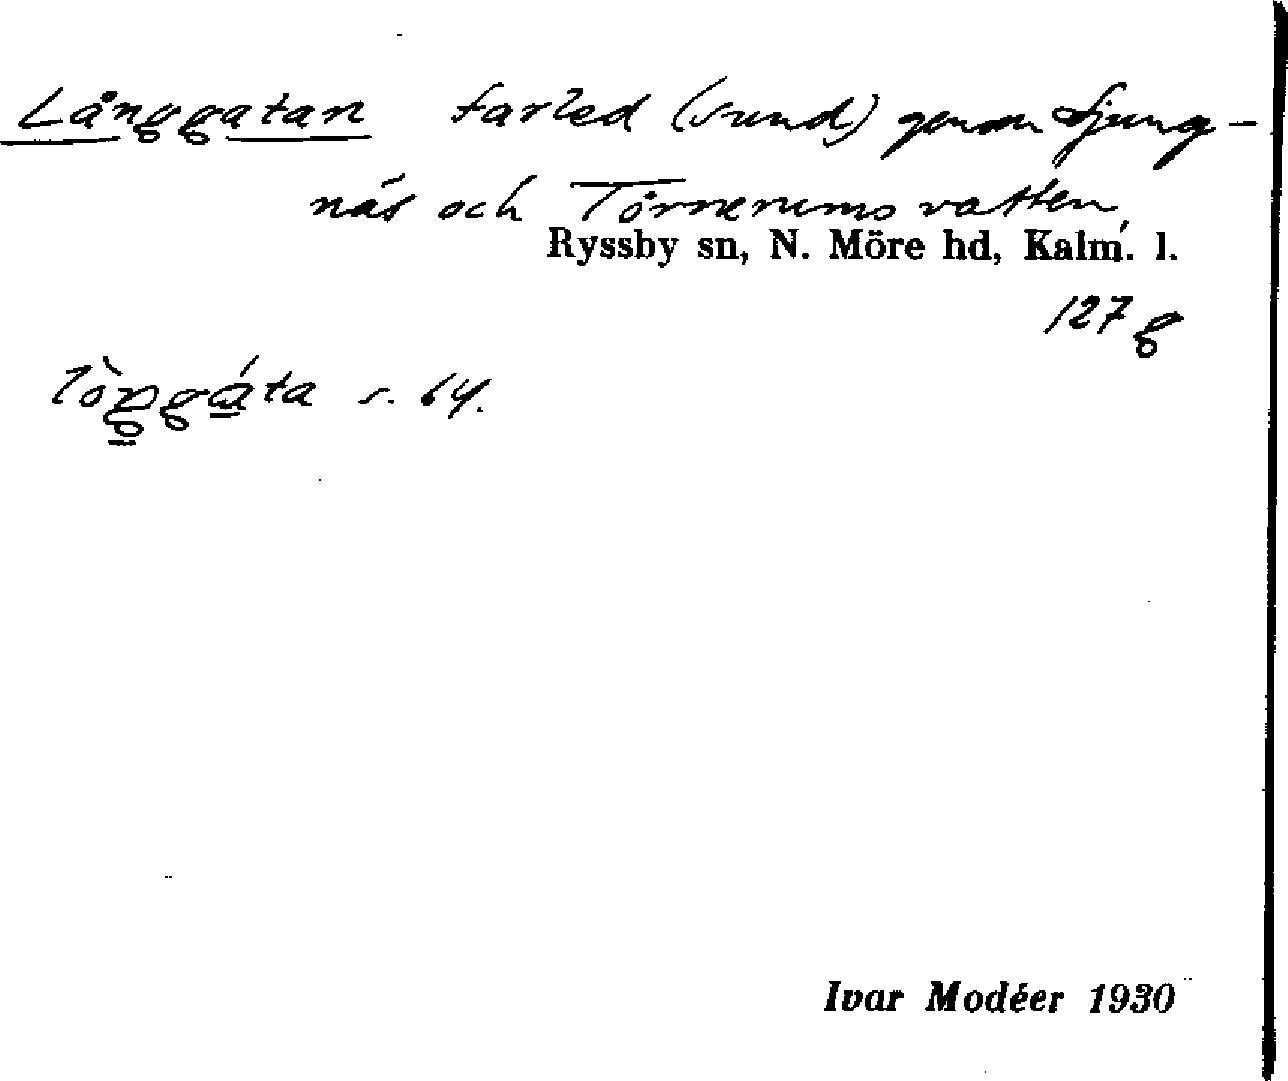 Långgatan farled (sund) genom Ljung-
näs och Törnerums vatten,
Ryssby sn, N. Möre hd, Kalm. l.
127 g
s. 64.
Ivar Modéer 1930